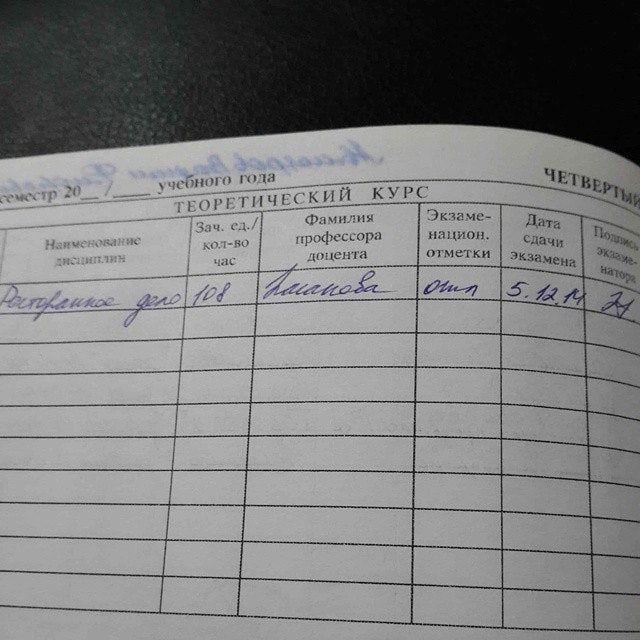 семестр 20__ /____ учебного года
ЧЕТВЕРТЫЙ
ТЕОРЕТИЧЕСКИЙ КУРС
Наименование
дисциплин
Зач. ед./
кол-во
час
Фамилия
профессора
доцента
Экзаме-
национ.
отметки
Дата
сдачи
экзамена
Подпись
экзаме-
натора
Ресторанное дело 108 отл 5.12.14